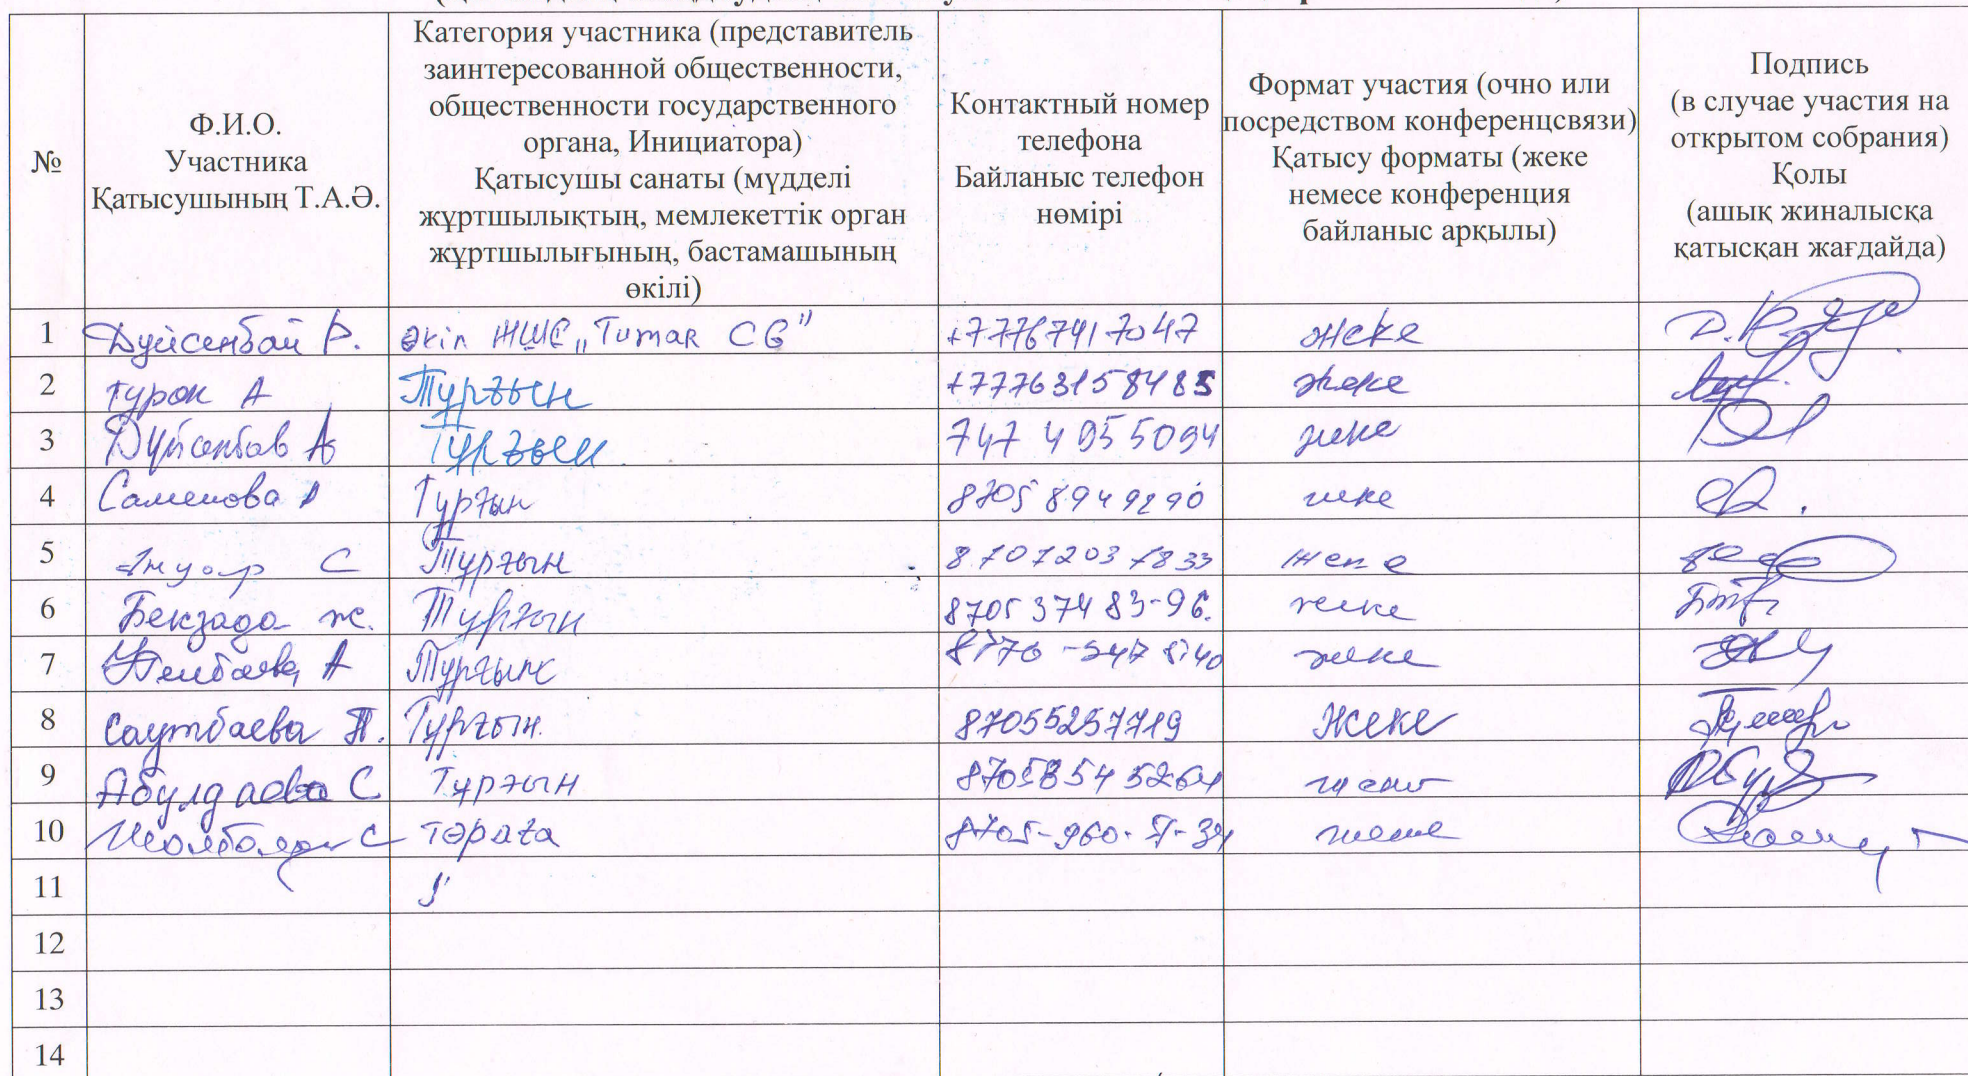 №
Ф.И.О.
Участника
Қатысушының Т.А.Ә.
Категория участника (представитель
заинтересованной общественности,
общественности государственного
органа, Инициатора)
Қатысушы санаты (мүдделі
жұртшылықтың, мемлекеттік орган
жұртшылығының, бастамашының
өкілі)
Контактный номер
телефона
Байланыс телефон
нөмірі
Формат участия (очно или
посредством конференцсвязи)
Қатысу форматы (жеке
немесе конференция
байланыс арқылы)
Подпись
(в случае участия на
открытом собрания)
Қолы
(ашық жиналысқа
қатысқан жағдайда)
1 Дүйсенбай Р. өкіл ЖШС „Tumar CG" +77767417047 жеке
2 А Тұрғын +77763158485 жеке
3 А Тұрғын 747 4955094 жеке
4 Саменова Тұрғын 8705 8949290 жеке
5 С Тұрғын 8707203 7833 жеке
6 Бекзада ж. Тұрғын 8705 374 83-96. жеке
7 А Тұрғын жеке
8 Саутбаева Т. Тұрғын. 87055257719 Жеке
9 Абулдаева С Тұрғын 87058545264 жеке
10 С төраға жеке
11
12
13
14